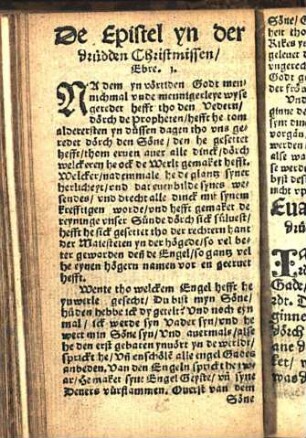 De Epistel yn der
drüdden Christmissen/
Ebre. 1.
NA dem yn vörtiden Godt men-
nichmal vnde mennigerleye wyse
geredet hefft tho den Vedern/
dörch de Propheten/hefft he tom
alderersten yn düssen dagen tho vns ge-
redet dörch den Söne/ den he gesettet
hefft/thom eruen auer alle dinck/dörch
welckeren he ock de Werlt gemaket hefft.
Welcker/nademmale he de glantz syner
herlicheyt/vnd dat euenbilde synes we-
sendes/ vnd drecht alle dinck mit synem
krefftigen worde/vnd hefft gemaket de
reyninge vnser Sünde dörch sick süluest/
hefft he sick gesettet tho der rechtern hant
der Maiesteten yn der högede/so vel be-
ter geworden deñ de Engel/so gantz vel
he eynen högern namen vor en geeruet
hefft.
Wente tho welckem Engel hefft he
ynwerle gesecht/ Du bist myn Söne/
hüden hebbe ick dy getelt? Vnd noch eyn
mal/ ick werde syn Vader syn/vnd he
wert min Söne syn/ Vnd auermals/alse
he den erst gebaren ynuört yn de werldt/
sprickt he/ Vñ en schölē alle engel Gades
anbeden. Van den Engeln sprickt he/ war/
He maket syne Engel Geyste/ vñ syne
Deners vürflammen. Ouerst van dem
Söne